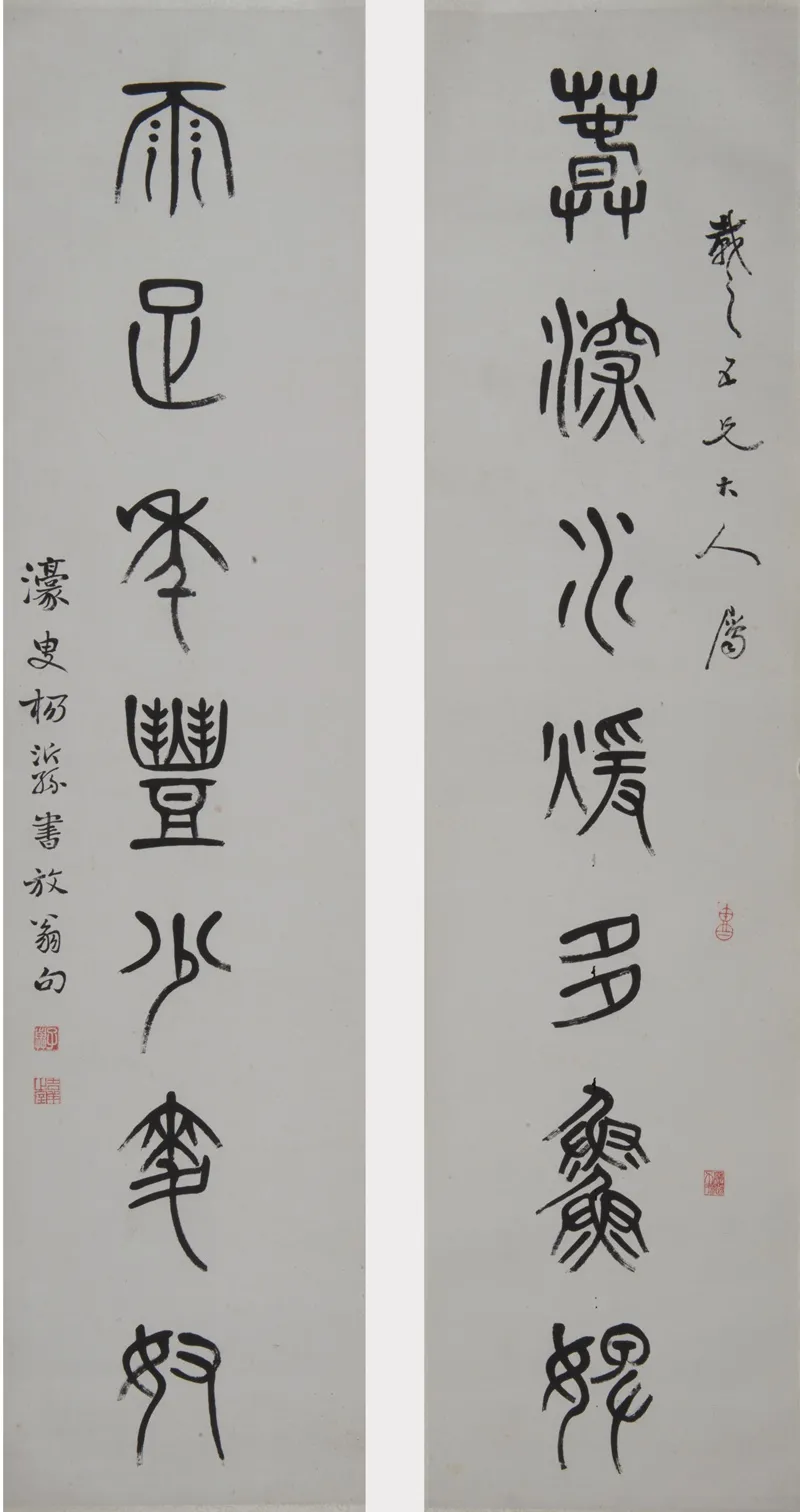 載之五兄大人屬
春深水煖多䲆婢
雨足年豐少麥奴
濠叟楊沂孫書放翁句